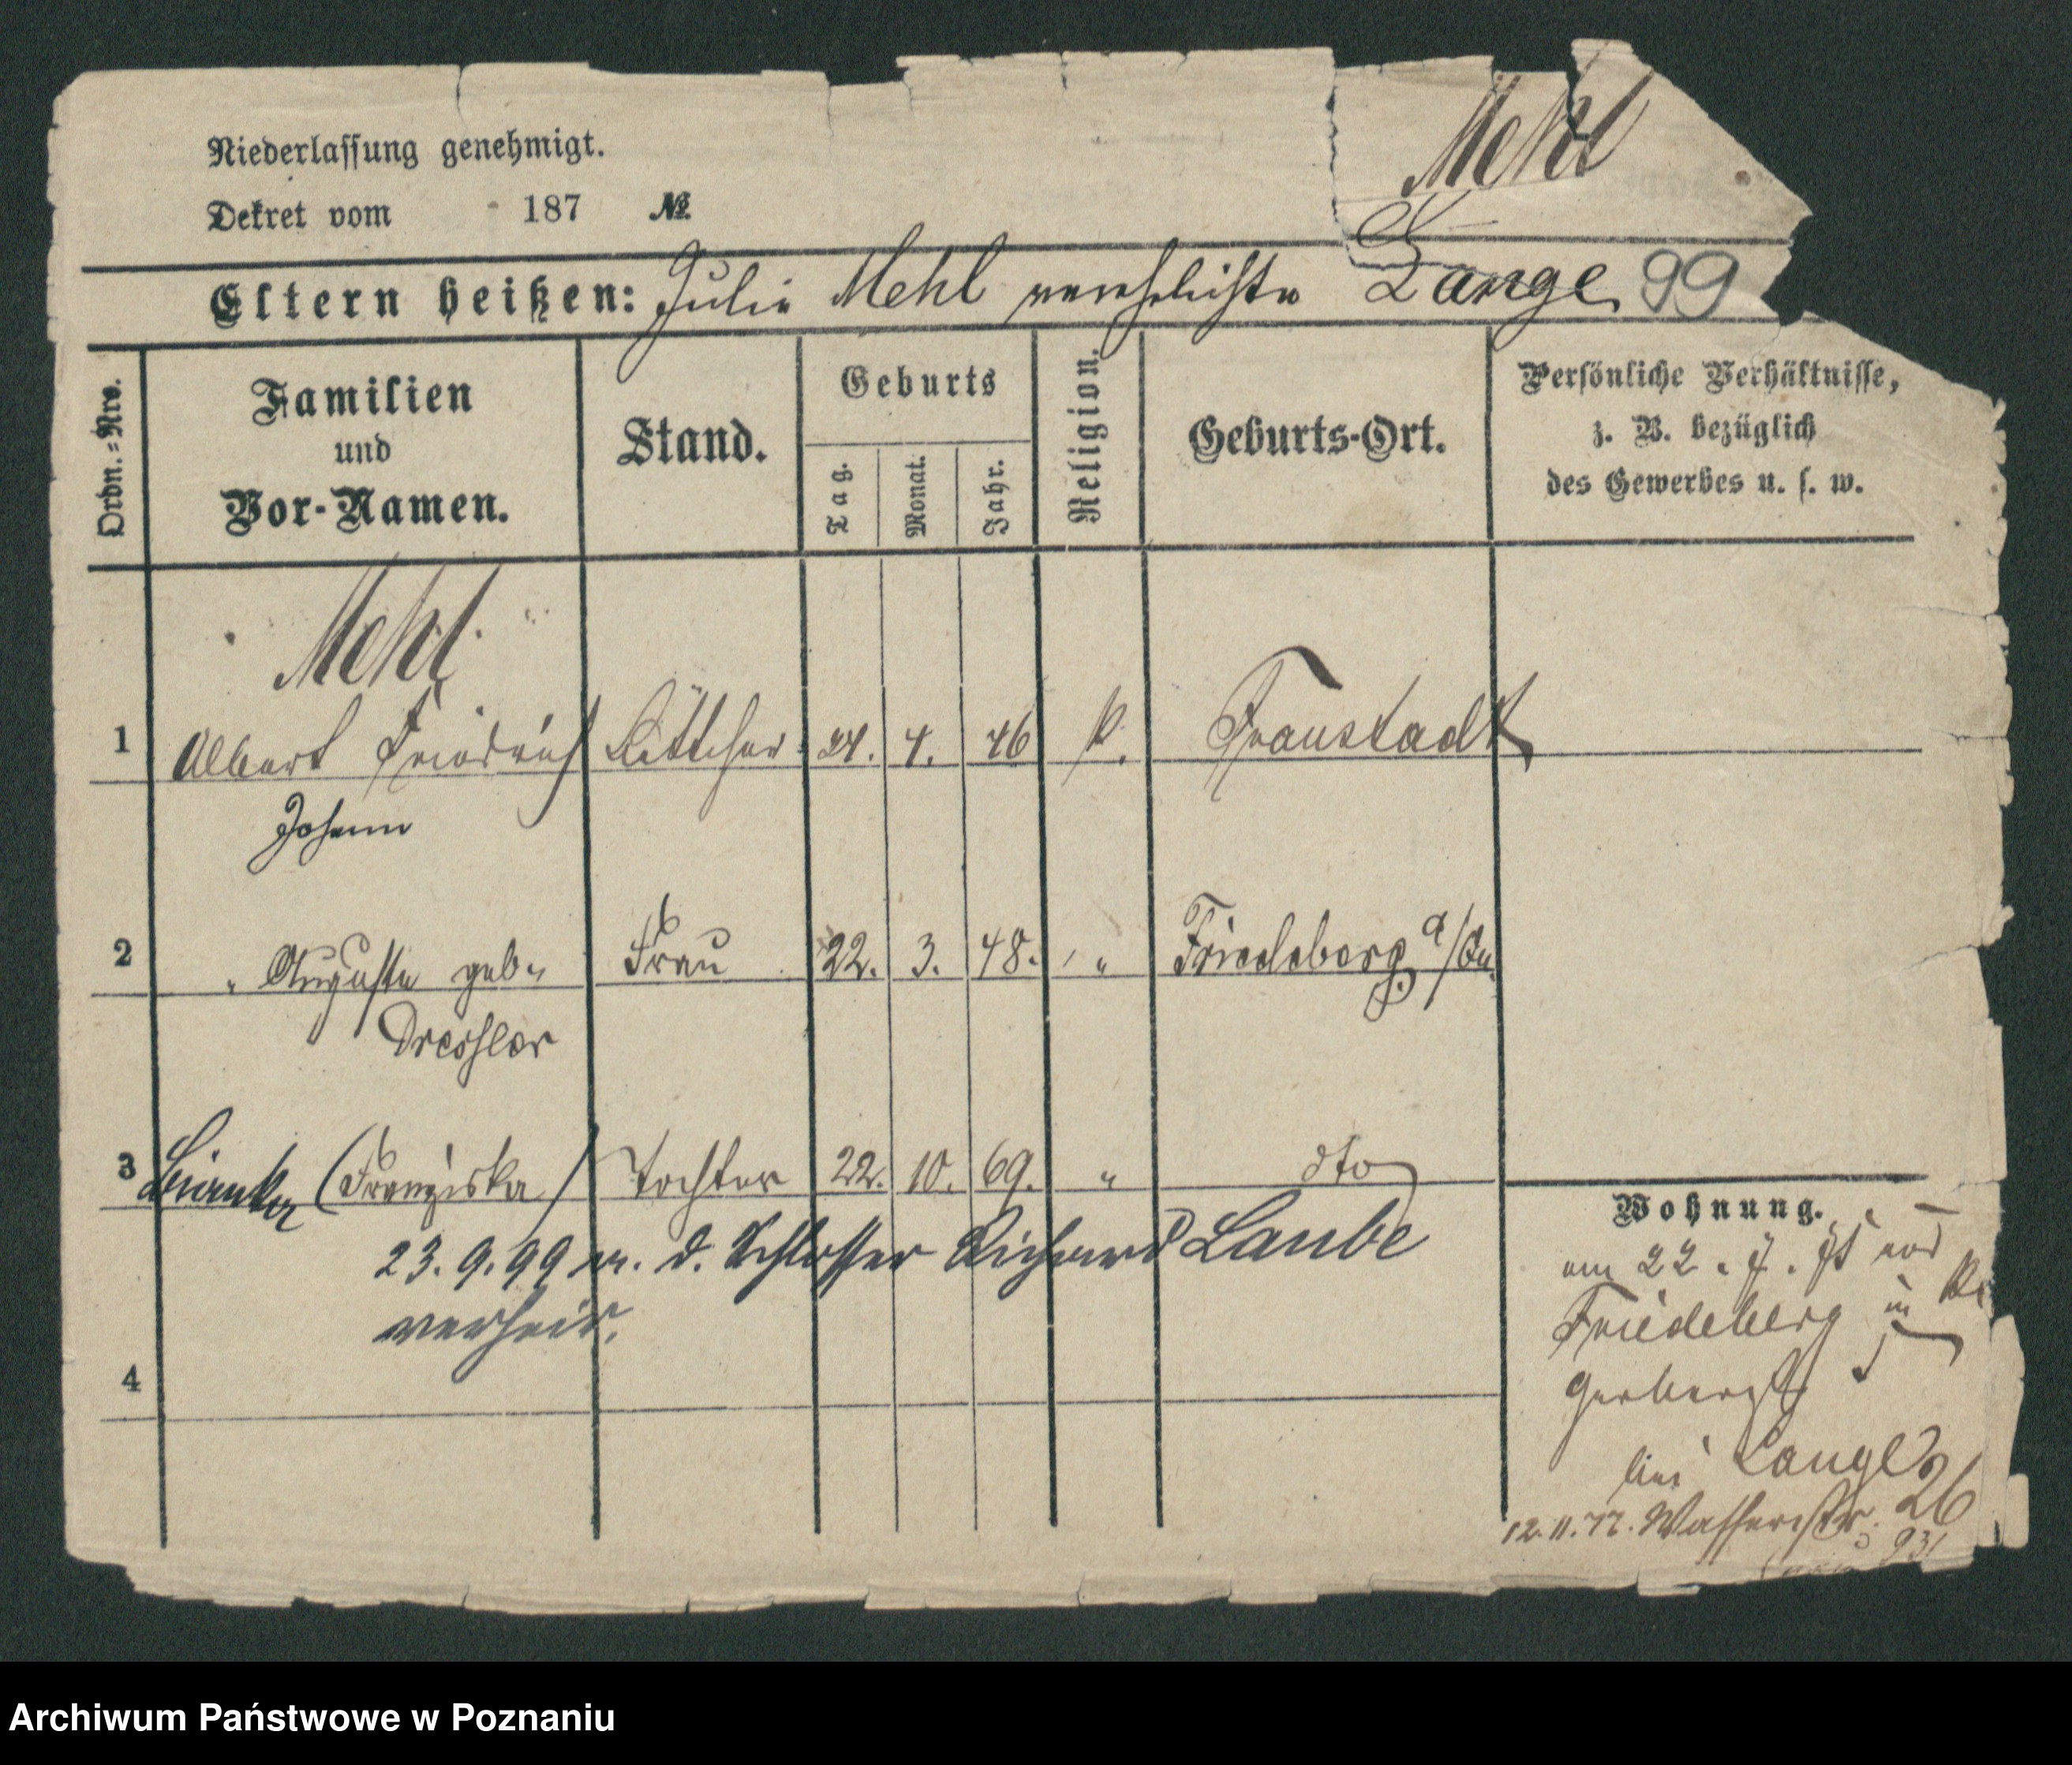 Mehl
Niederlassung genehmigt.
Dekret vom 187 №
Eltern heißen: Julie Mehl verehelichte Lange 99
Ordn.=Nro.
Familien
und
Vor-Namen.
Stand.
Geburts
Tag.
Monat.
Jahr.
Religion.
Geburts-Ort.
Persönliche Verhältnisse,
z. B. bezüglich
des Gewerbes u. s. w.
Mehl
1 Albert Friedrich Böttcher 24. 4. 46 k. Fraustadt
Johann
2 " Auguste geb. Frau 22. 3. 48. " Friedeberg a/
Dressler
3 (Franziska) Tochter 22. 10. 69. " dto
23. 9. 99 m. d. Schlosser Richard Laube
verheir.
4
Wohnung.
am 22. 7. aus
Friedeberg in
Gerberstr
bei Lange
12. 11. 77. Wasserstr. 26
931
Archiwum Państwowe w Poznaniu